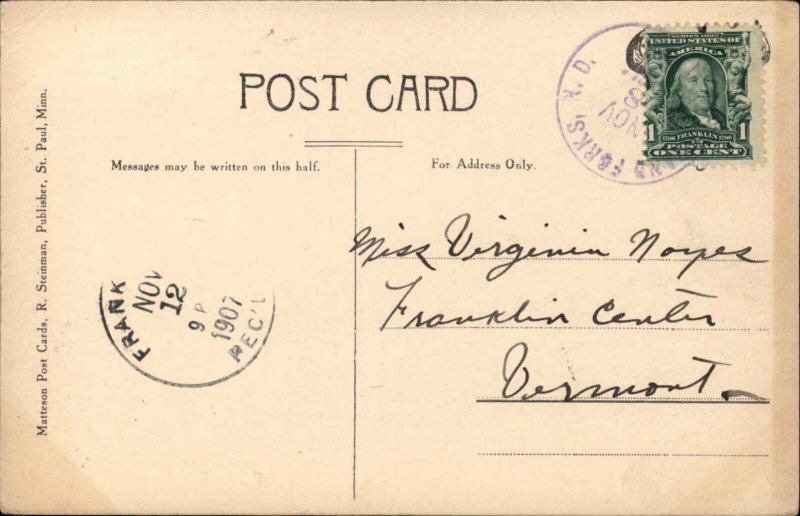 POST CARD
Messages may be written on this half.
For Address Only.
Matteson Post Cards, R. Steinman, Publisher, St. Paul, Minn.
AND FORKS, N. D.
NOV
8
SERIES 1902
UNITED STATES OF
AMERICA
1706 FRANKLIN 1790
1 1
POSTAGE
ONE CENT
Miss Virginia Noyes
Franklin Center
Vermont.
FRANK
NOV
12
9 P
1907
REC'D